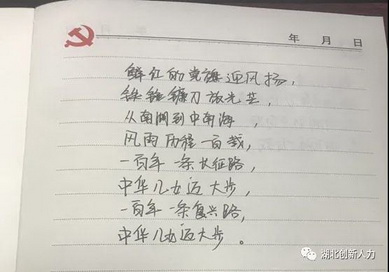 年 月 日
鲜红的党旗迎风扬,
铁锤镰刀放光芒,
从南湖到中南海,
风雨历程一百载,
一百年一条长征路,
中华儿女迈大步,
一百年一条复兴路,
中华儿女迈大步。
湖北创新人力